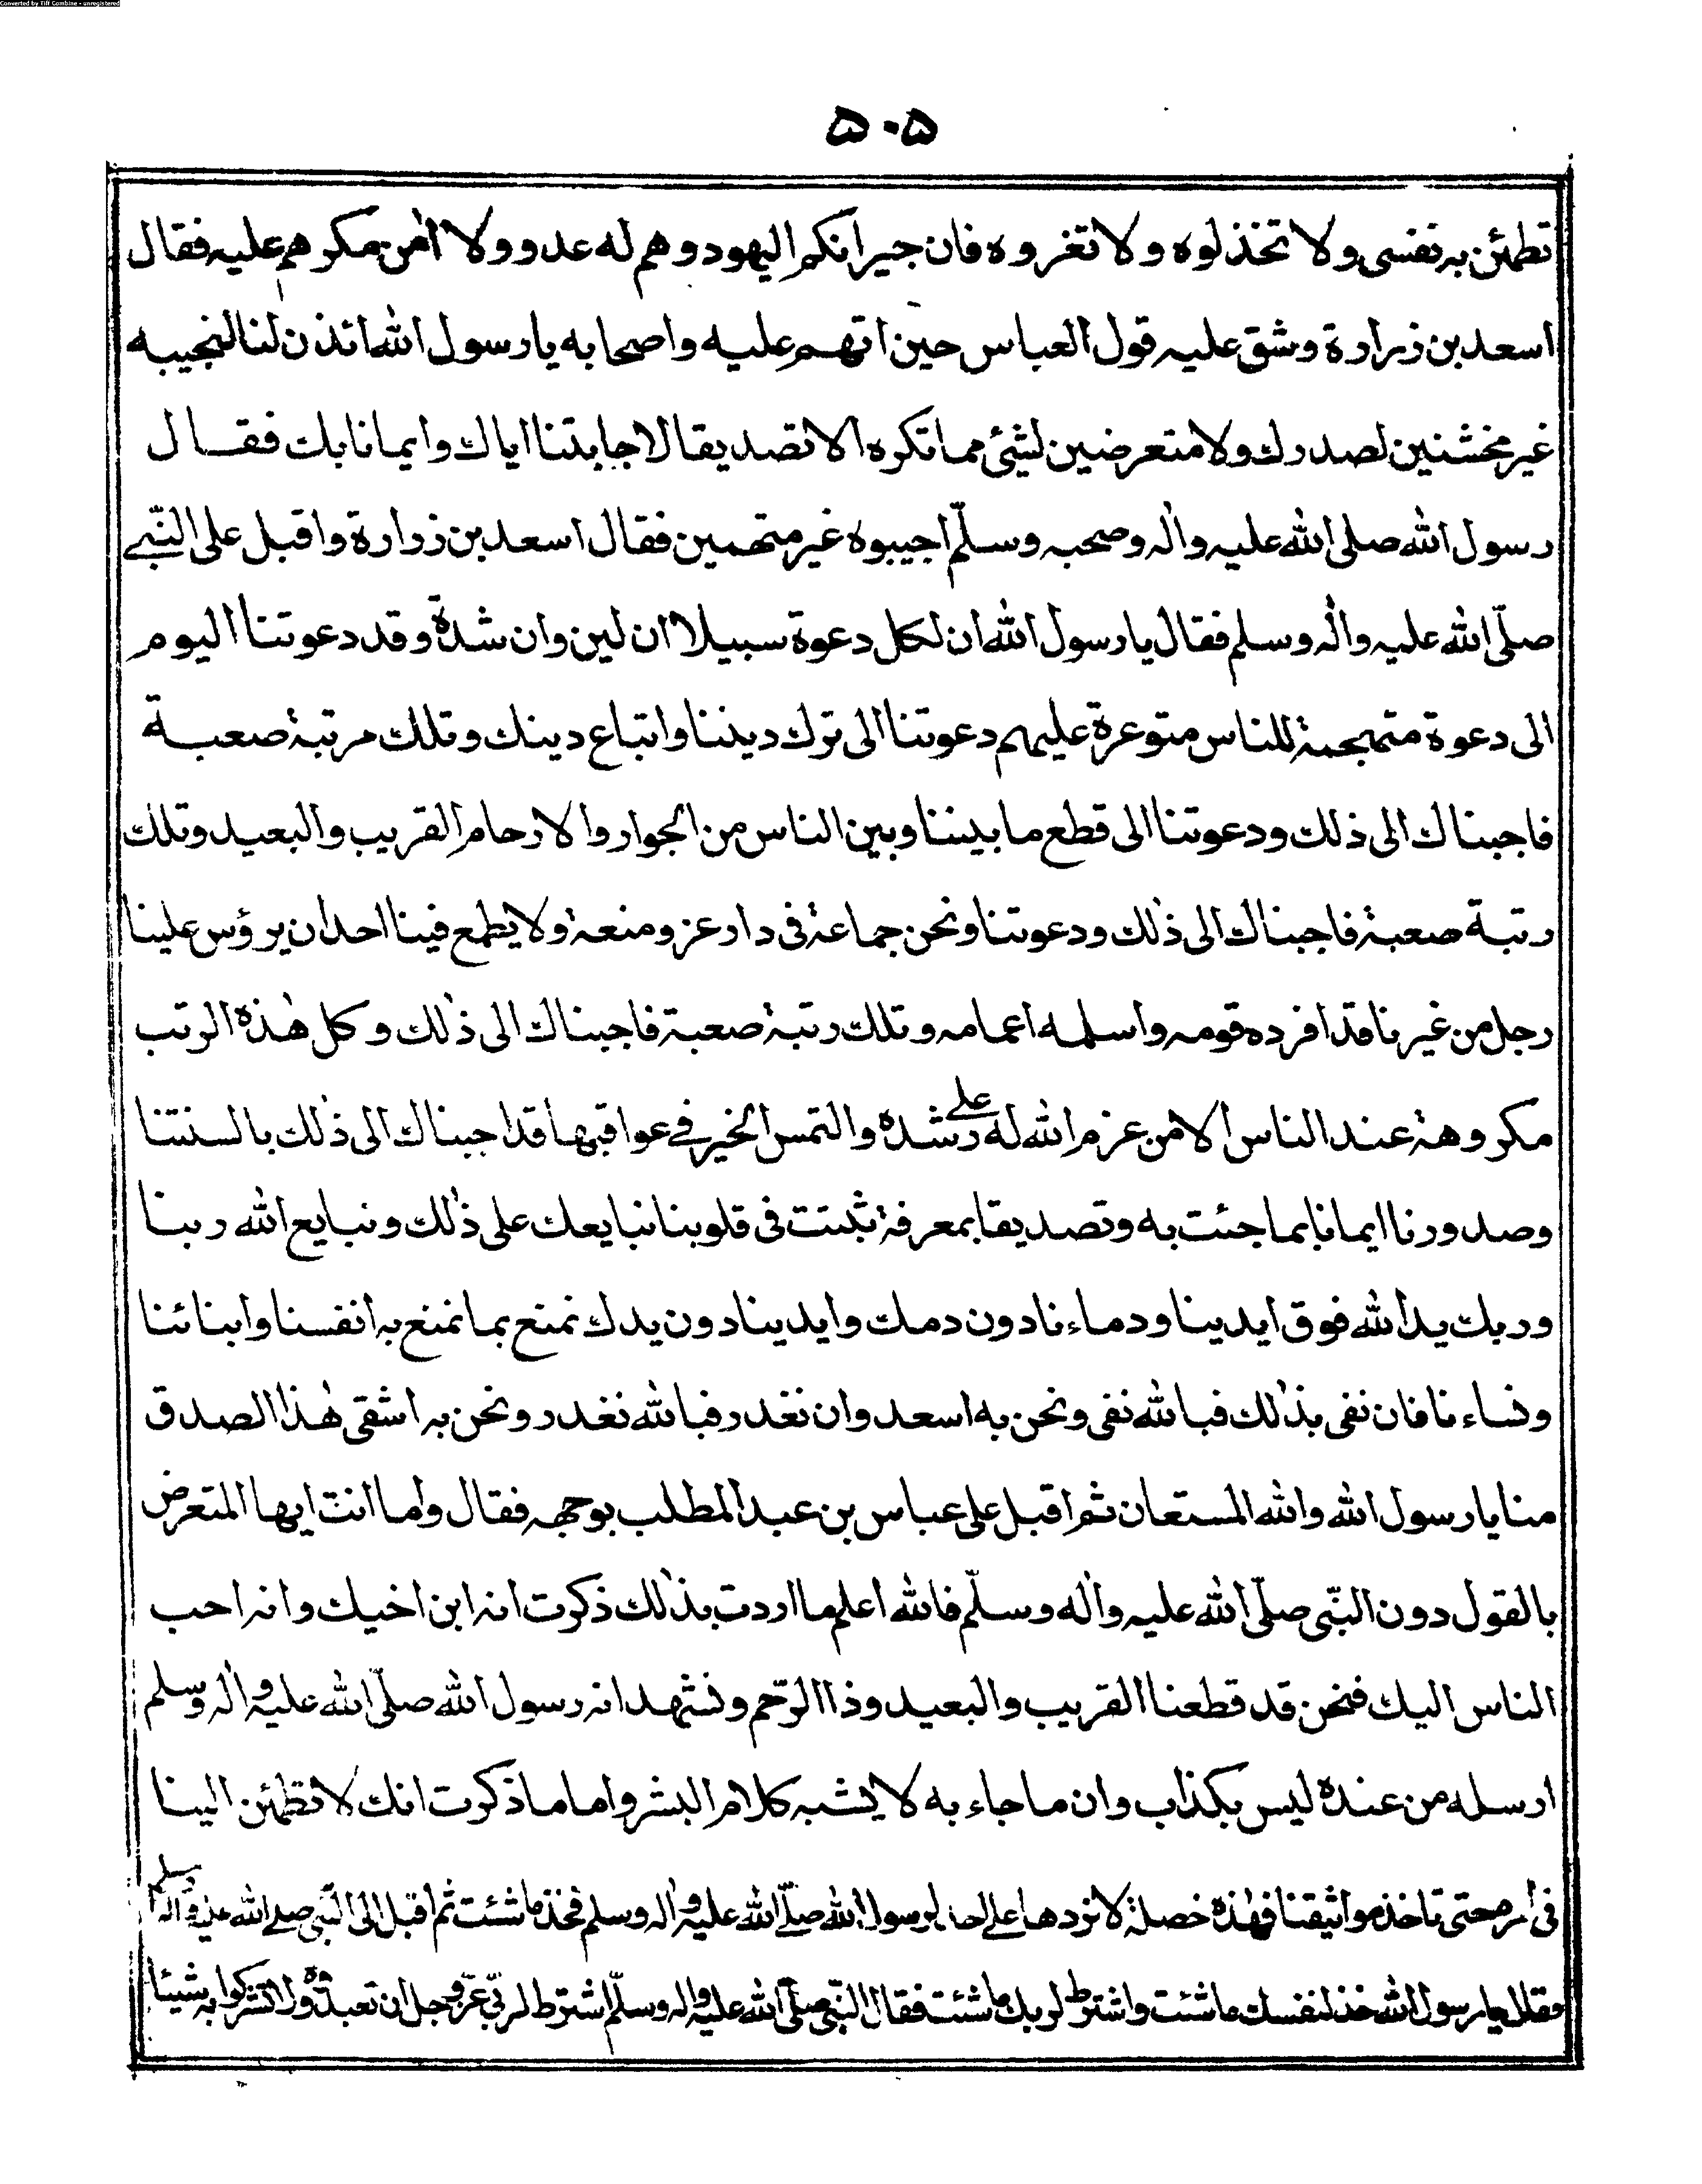 Converted by Tiff Combine - unregistered
۵۰۵
تطمئن به نفسى ولا تخذلوه ولا تغروه فان جيرانكم اليهود وهم له عدو ولا اٰمن مكرهم عليه فقال
اسعد بن زرارة وشق عليه قول العباس حين اتهم عليه واصحابه يا رسول الله ائذن لنا لنجيبه
غير مخشنين لصدرك ولا متعرضين لشئ مما تكره الا تصديقا لاجابتنا اياك وايمانا بك فقال
رسول الله صلى الله عليه واٰله وصحبه وسلّم اجيبوه غير متهمين فقال اسعد بن زرارة واقبل على النّبى
صلّى الله عليه واٰله وسلم فقال يا رسول الله ان لكل دعوة سبيلا ان لين وان شدة وقد دعوتنا اليوم
الى دعوة متهجمة للناس متوعرة عليهم دعوتنا الى ترك ديننا واتباع دينك وتلك مرتبة صعبة
فاجبناك الى ذلك ودعوتنا الى قطع ما بيننا وبين الناس من الجوار والارحام القريب والبعيد وتلك
رتبة صعبة فاجبناك الى ذٰلك ودعوتنا ونحن جماعة فى دار عز ومنعة ولا يطمع فينا احد ان يرؤس علينا
رجل من غيرنا قد افرده قومه واسلمه اعمامه وتلك رتبة صعبة فاجبناك الى ذٰلك وكل هٰذه الرتب
مكروهة عند الناس الا من عزم الله له على رشده والتمس الخير فى عواقبها قد اجبناك الى ذٰلك بالسنتنا
وصدورنا ايمانا بما جئت به وتصديقا بمعرفة ثبتت فى قلوبنا نبايعك على ذٰلك ونبايع الله ربنا
وربك يد الله فوق ايدينا ودماءنا دون دمك وايدينا دون يدك نمنع بما نمنع به انفسنا وابنائنا
ونساءنا فان نفى بذٰلك فبالله نفى ونحن به اسعد وان نغدر فبالله نغدر ونحن به اشقى هٰذا الصدق
منا يا رسول الله والله المستعان ثم اقبل على عباس بن عبد المطلب بوجهه فقال واما انت ايها المتعرض
بالقول دون النّبى صلّى الله عليه واٰله وسلّم فالله اعلم ما اردت بذٰلك ذكرت انه ابن اخيك وانه احب
الناس اليك فنحن قد قطعنا القريب والبعيد وذا الرّحم ونشهد انه رسول الله صلّى الله عليه واٰله وسلم
ارسله من عنده ليس بكذاب وان ما جاء به لا يشبه كلام البشر واما ما ذكرت انك لا تطمئن الينا
فى امره حتى تاخذ مواثيقنا فهٰذه خصلة لا نردها على احد لرسول الله صلّى الله عليه واٰله وسلم فخذ ما شئت ثم اقبل الى النّبى صلى الله عليه واٰله وسلم
وقال يا رسول الله خذ لنفسك ما شئت واشترط لربك ما شئت فقال النّبى صلّى الله عليه واٰله وسلّم اشترط لربّى عزّ وجل ان تعبدوه ولا تشركوا به شيئا